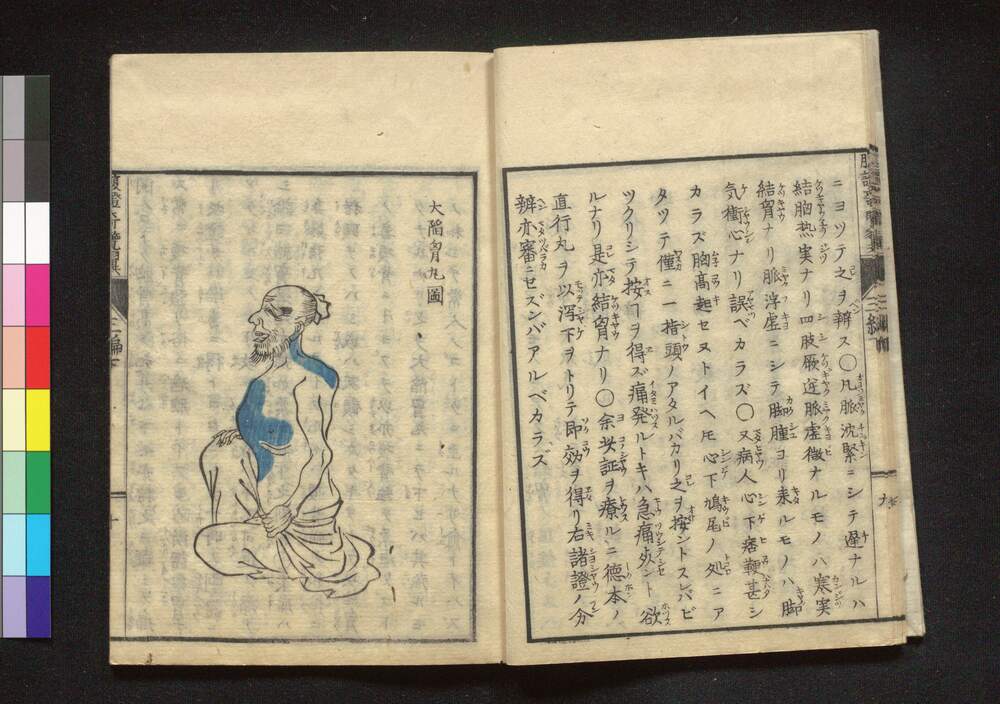 ニヨツテ之ヲ辨ス〇凡脈沈緊ニシテ遲ナルハ
結胸热実ナリ四肢厥逆脈虚微ナルモノハ寒実
結胷ナリ脈浮虚ニシテ脚腫ヨリ来ルモノハ脚
気衝心ナリ誤ベカラズ〇又病人心下痞鞕甚シ
カラズ胸高起セヌトイヘ𪜈心下鳩尾ノ処ニア
タツテ僅ニ一指頭ノアタルバカリ之ヲ按ントスレバビ
ツクリシテ按ヿヲ得ズ痛発ルトキハ急痛死ント欲
ルナリ是亦結胷ナリ〇余此証ヲ療ルニ徳本ノ
直行丸ヲ以瀉下ヲトリテ即効ヲ得リ右諸證ノ分
辨亦審ニセズンバアルベカラズ
大陷胷丸圖
腹證奇覽翼
三編